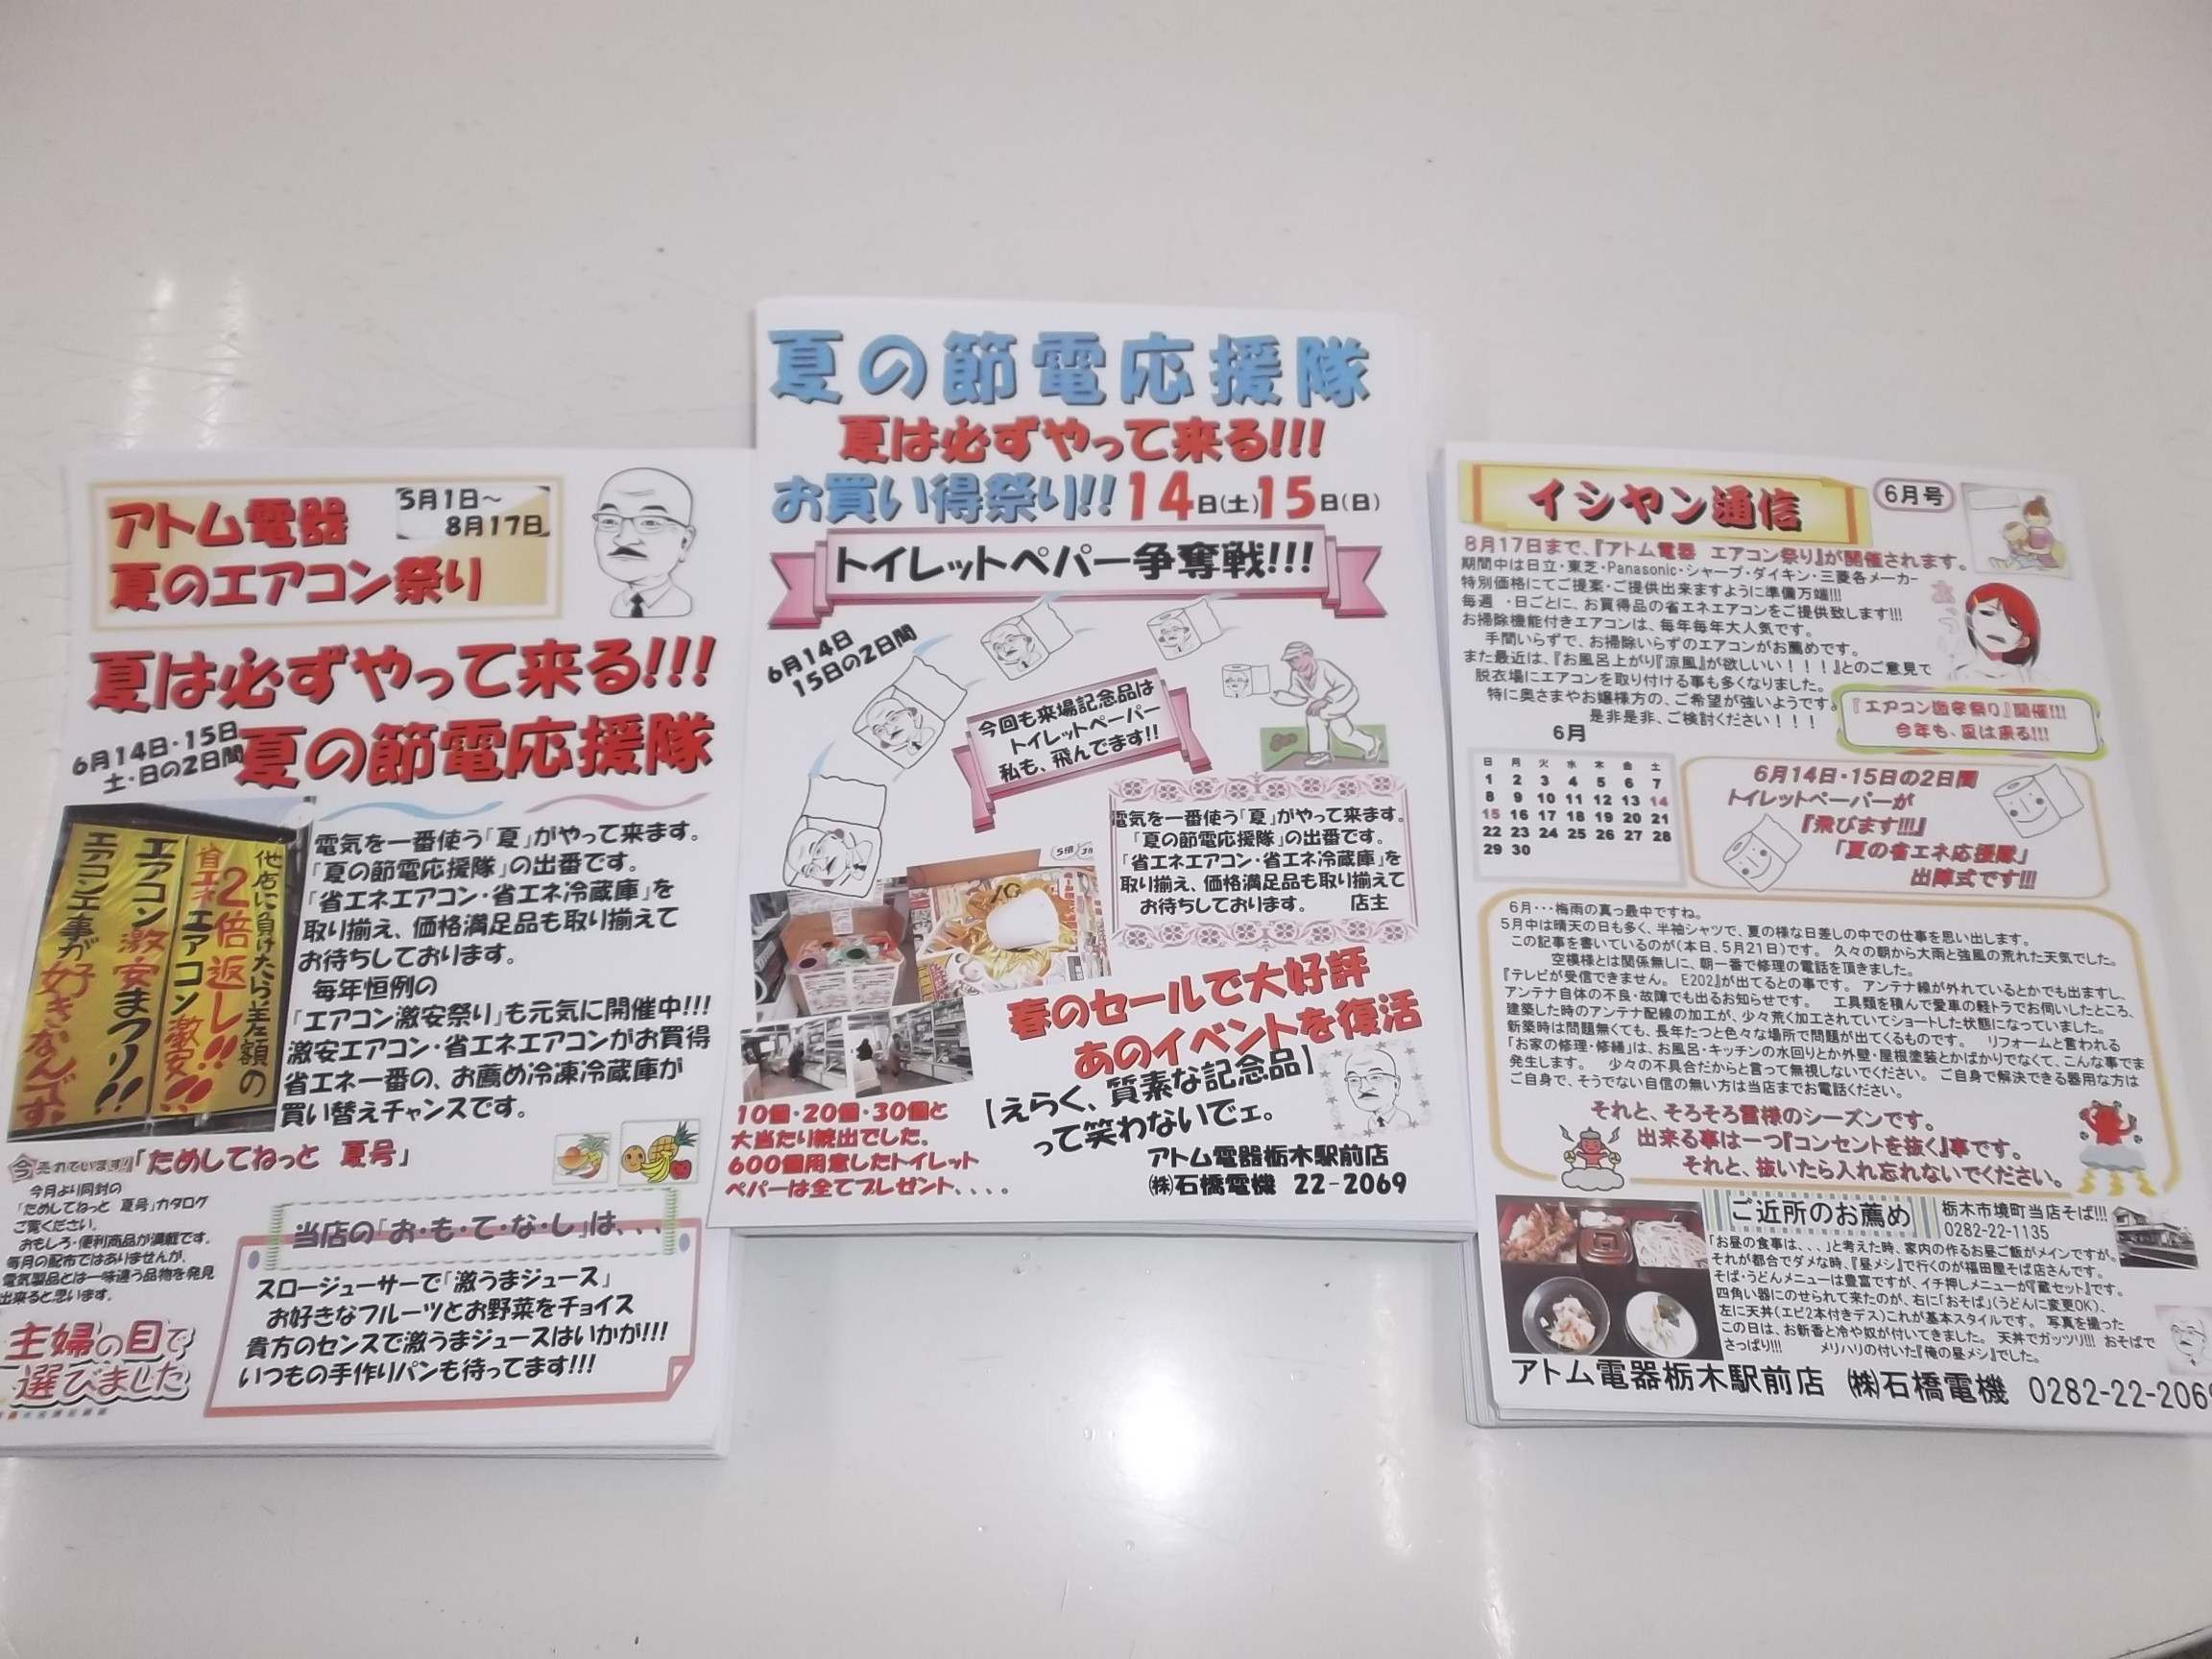 アトム電器
5月1日～
8月17日
夏のエアコン祭り
夏は必ずやって来る!!!
6月14日・15日
土・日の2日間
夏の節電応援隊
他店に負けたら差額の
2倍返し!!
省エネエアコン激安!!
エアコン激安まつり!!
エアコン工事が好きなんです。
電気を一番使う「夏」がやって来ます。
「夏の節電応援隊」の出番です。
「省エネエアコン・省エネ冷蔵庫」を
取り揃え、価格満足品も取り揃えて
お待ちしております。
毎年恒例の
「エアコン激安祭り」も元気に開催中!!!
激安エアコン・省エネエアコンがお買得
省エネ一番の、お薦め冷凍冷蔵庫が
買い替えチャンスです。
今売れています!「ためしてねっと 夏号」
今月より同封の
「ためしてねっと 夏号」カタログ
ご覧ください。
おもしろ・便利商品が満載です。
毎月の配布ではありませんが、
電気製品とは一味違う品物を発見
出来ると思います。
主婦の目で
選びました
当店の「お・も・て・な・し」は、、、
スロージューサーで「激うまジュース」
お好きなフルーツとお野菜をチョイス
貴方のセンスで激うまジュースはいかが!!!
いつもの手作りパンも待ってます!!!
夏の節電応援隊
夏は必ずやって来る!!!
お買い得祭り!!14日(土)15日(日)
トイレットペパー争奪戦!!!
6月14日
15日の2日間
今回も来場記念品は
トイレットペーパー
私も、飛んでます!!
電気を一番使う「夏」がやって来ます。
「夏の節電応援隊」の出番です。
「省エネエアコン・省エネ冷蔵庫」を
取り揃え、価格満足品も取り揃えて
お待ちしております。 店主
春のセールで大好評
あのイベントを復活
【えらく、質素な記念品】
って笑わないでェ。
10個・20個・30個と
大当たり続出でした。
600個用意したトイレット
ペパーは全てプレゼント、、、。
アトム電器栃木駅前店
㈱石橋電機 22-2069
イシヤン通信
6月号
8月17日まで、『アトム電器 エアコン祭り』が開催されます。
期間中は日立・東芝・Panasonic・シャープ・ダイキン・三菱各メーカー
特別価格にてご提案・ご提供出来ますように準備万端!!!
毎週 ・日ごとに、お買得品の省エネエアコンをご提供致します!!!
お掃除機能付きエアコンは、毎年毎年大人気です。
手間いらずで、お掃除いらずのエアコンがお薦めです。
また最近は、『お風呂上がり『涼風』が欲しいい！！！』とのご意見で
脱衣場にエアコンを取り付ける事も多くなりました。
特に奥さまやお嬢様方の、ご希望が強いようです。
是非是非、ご検討ください！！！
『エアコン激安祭り』開催!!!
今年も、夏は来る!!!
6月
日 月 火 水 木 金 土
1 2 3 4 5 6 7
8 9 10 11 12 13 14
15 16 17 18 19 20 21
22 23 24 25 26 27 28
29 30
6月14日・15日の2日間
トイレットペーパーが
『飛びます!!!』
「夏の省エネ応援隊」
出陣式です!!!
6月・・・梅雨の真っ最中ですね。
5月中は晴天の日も多く、半袖シャツで、夏の様な日差しの中での仕事を思い出します。
この記事を書いているのが(本日、5月21日)です。 久々の朝から大雨と強風の荒れた天気でした。
空模様とは関係無しに、朝一番で修理の電話を頂きました。
『テレビが受信できません。 E202』が出てるとの事です。 アンテナ線が外れているとかでも出ますし、
アンテナ自体の不良・故障でも出るお知らせです。 工具類を積んで愛車の軽トラでお伺いしたところ、
建築した時のアンテナ配線の加工が、少々荒く加工されていてショートした状態になっていました。
新築時は問題無くても、長年たつと色々な場所で問題が出てくるものです。 リフォームと言われる
「お家の修理・修繕」は、お風呂・キッチンの水回りとか外壁・屋根塗装とかばかりでなくて、こんな事でま
発生します。 少々の不具合だからと言って無視しないでください。 ご自身で解決できる器用な方は
ご自身で、そうでない自信の無い方は当店までお電話ください。
それと、そろそろ雷様のシーズンです。
出来る事は一つ『コンセントを抜く』事です。
それと、抜いたら入れ忘れないでください。
ご近所のお薦め
栃木市境町当店そば!!!
0282-22-1135
「お昼の食事は、、、」と考えた時、家内の作るお昼ご飯がメインですが。
それが都合でダメな時、『昼メシ』で行くのが福田屋そば店さんです。
そば・うどんメニューは豊富ですが、イチ押しメニューが『蔵セット』です。
四角い器にのせられて来たのが、右に「おそば」(うどんに変更OK)、
左に天丼(エビ2本付きデス)これが基本スタイルです。 写真を撮った
この日は、お新香と冷や奴が付いてきました。 天丼でガッツリ!!! おそばで
さっぱり!!! メリハリの付いた『俺の昼メシ』でした。
アトム電器栃木駅前店 ㈱石橋電機 0282-22-206